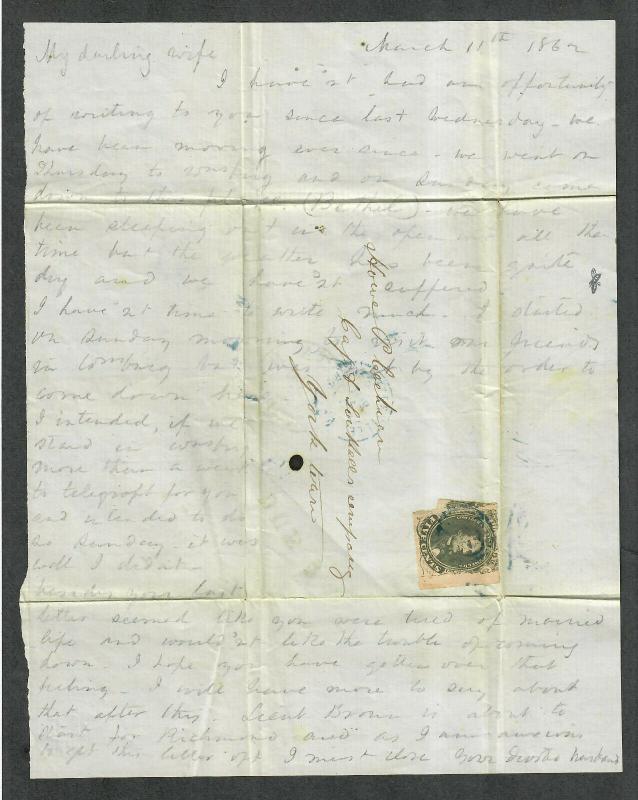 March 11th 1862
My darling wife
I have'nt had an opportunity
of writing to you since last Wednesday - we
have been moving ever since - we went on
Thursday to and on Sunday came
down to this (Bethel) - we have
been sleeping out in the open air all the
time but the weather has been quite
dry and we have'nt suffered.
I have'nt time to write much. I started
on Sunday morning friends
in but was by the order to
come down here
I intended, if we
staid in
more than a week
to telegraph for you
and intended to do
so Sunday - it was
well I didn't.
besides your last
letter seemed like you were tired of married
life and would'nt like the trouble of coming
down. I hope you have gotten over that
feeling - I will have more to say about
that after this - Lieut Brown is about to
start for Richmond and as I am anxious
to get this letter off I must close Your devoted husband
Howe P Cochran
Capt company
York town